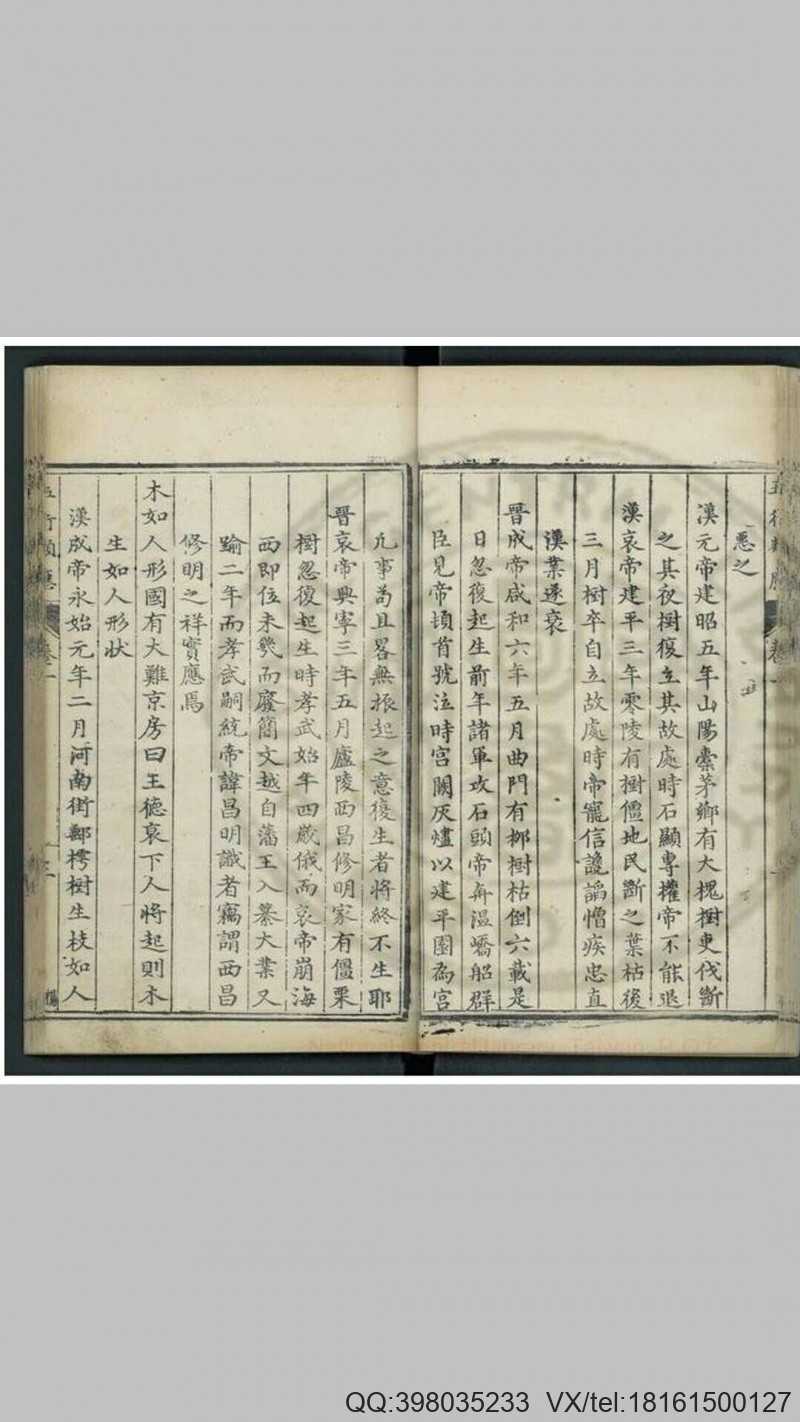 惡之
漢元帝建昭五年山陽橐茅鄉有大槐樹吏伐斷
之其夜樹復立其故處時石顯專權帝不能退
漢哀帝建平三年零陵有樹僵地民斷之葉枯後
三月樹卒自立故處時帝寵信讒謟憎疾忠直
漢業遂衰
晉成帝咸和六年五月曲門有栁樹枯倒六載是
日忽復起生前年諸軍攻石頭帝舟溫嶠船群
臣見帝頓首號泣時宮闕灰燼以建平園為宮
凡事苟且畧無振起之意復生者將終不生耶
晉哀帝興寧三年五月廬陵西昌修明家有僵栗
樹忽復起生時孝武始年四歲俄而哀帝崩海
西即位未幾而廢簡文越自藩王入纂大業又
踰二年而孝武嗣統帝諱昌明識者竊謂西昌
修明之祥實應焉
木如人形國有大難京房曰王德衰下人將起則木
生如人形狀
漢成帝永始元年二月河南街郵樗樹生枝如人
五行類應 卷一
QQ:398035233 VX/tel:18161500127